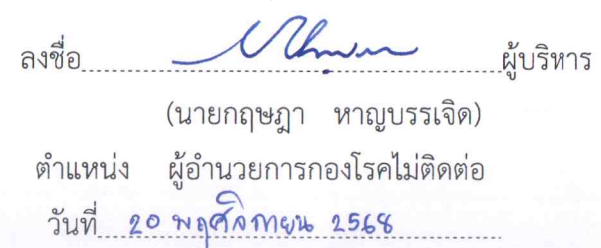 ลงชื่อ ผู้บริหาร
(นายกฤษฎา หาญบรรเจิด)
ตำแหน่ง ผู้อำนวยการกองโรคไม่ติดต่อ
วันที่ 20 พฤศจิกายน 2568